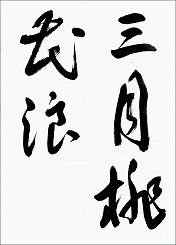 三月桃
花浪